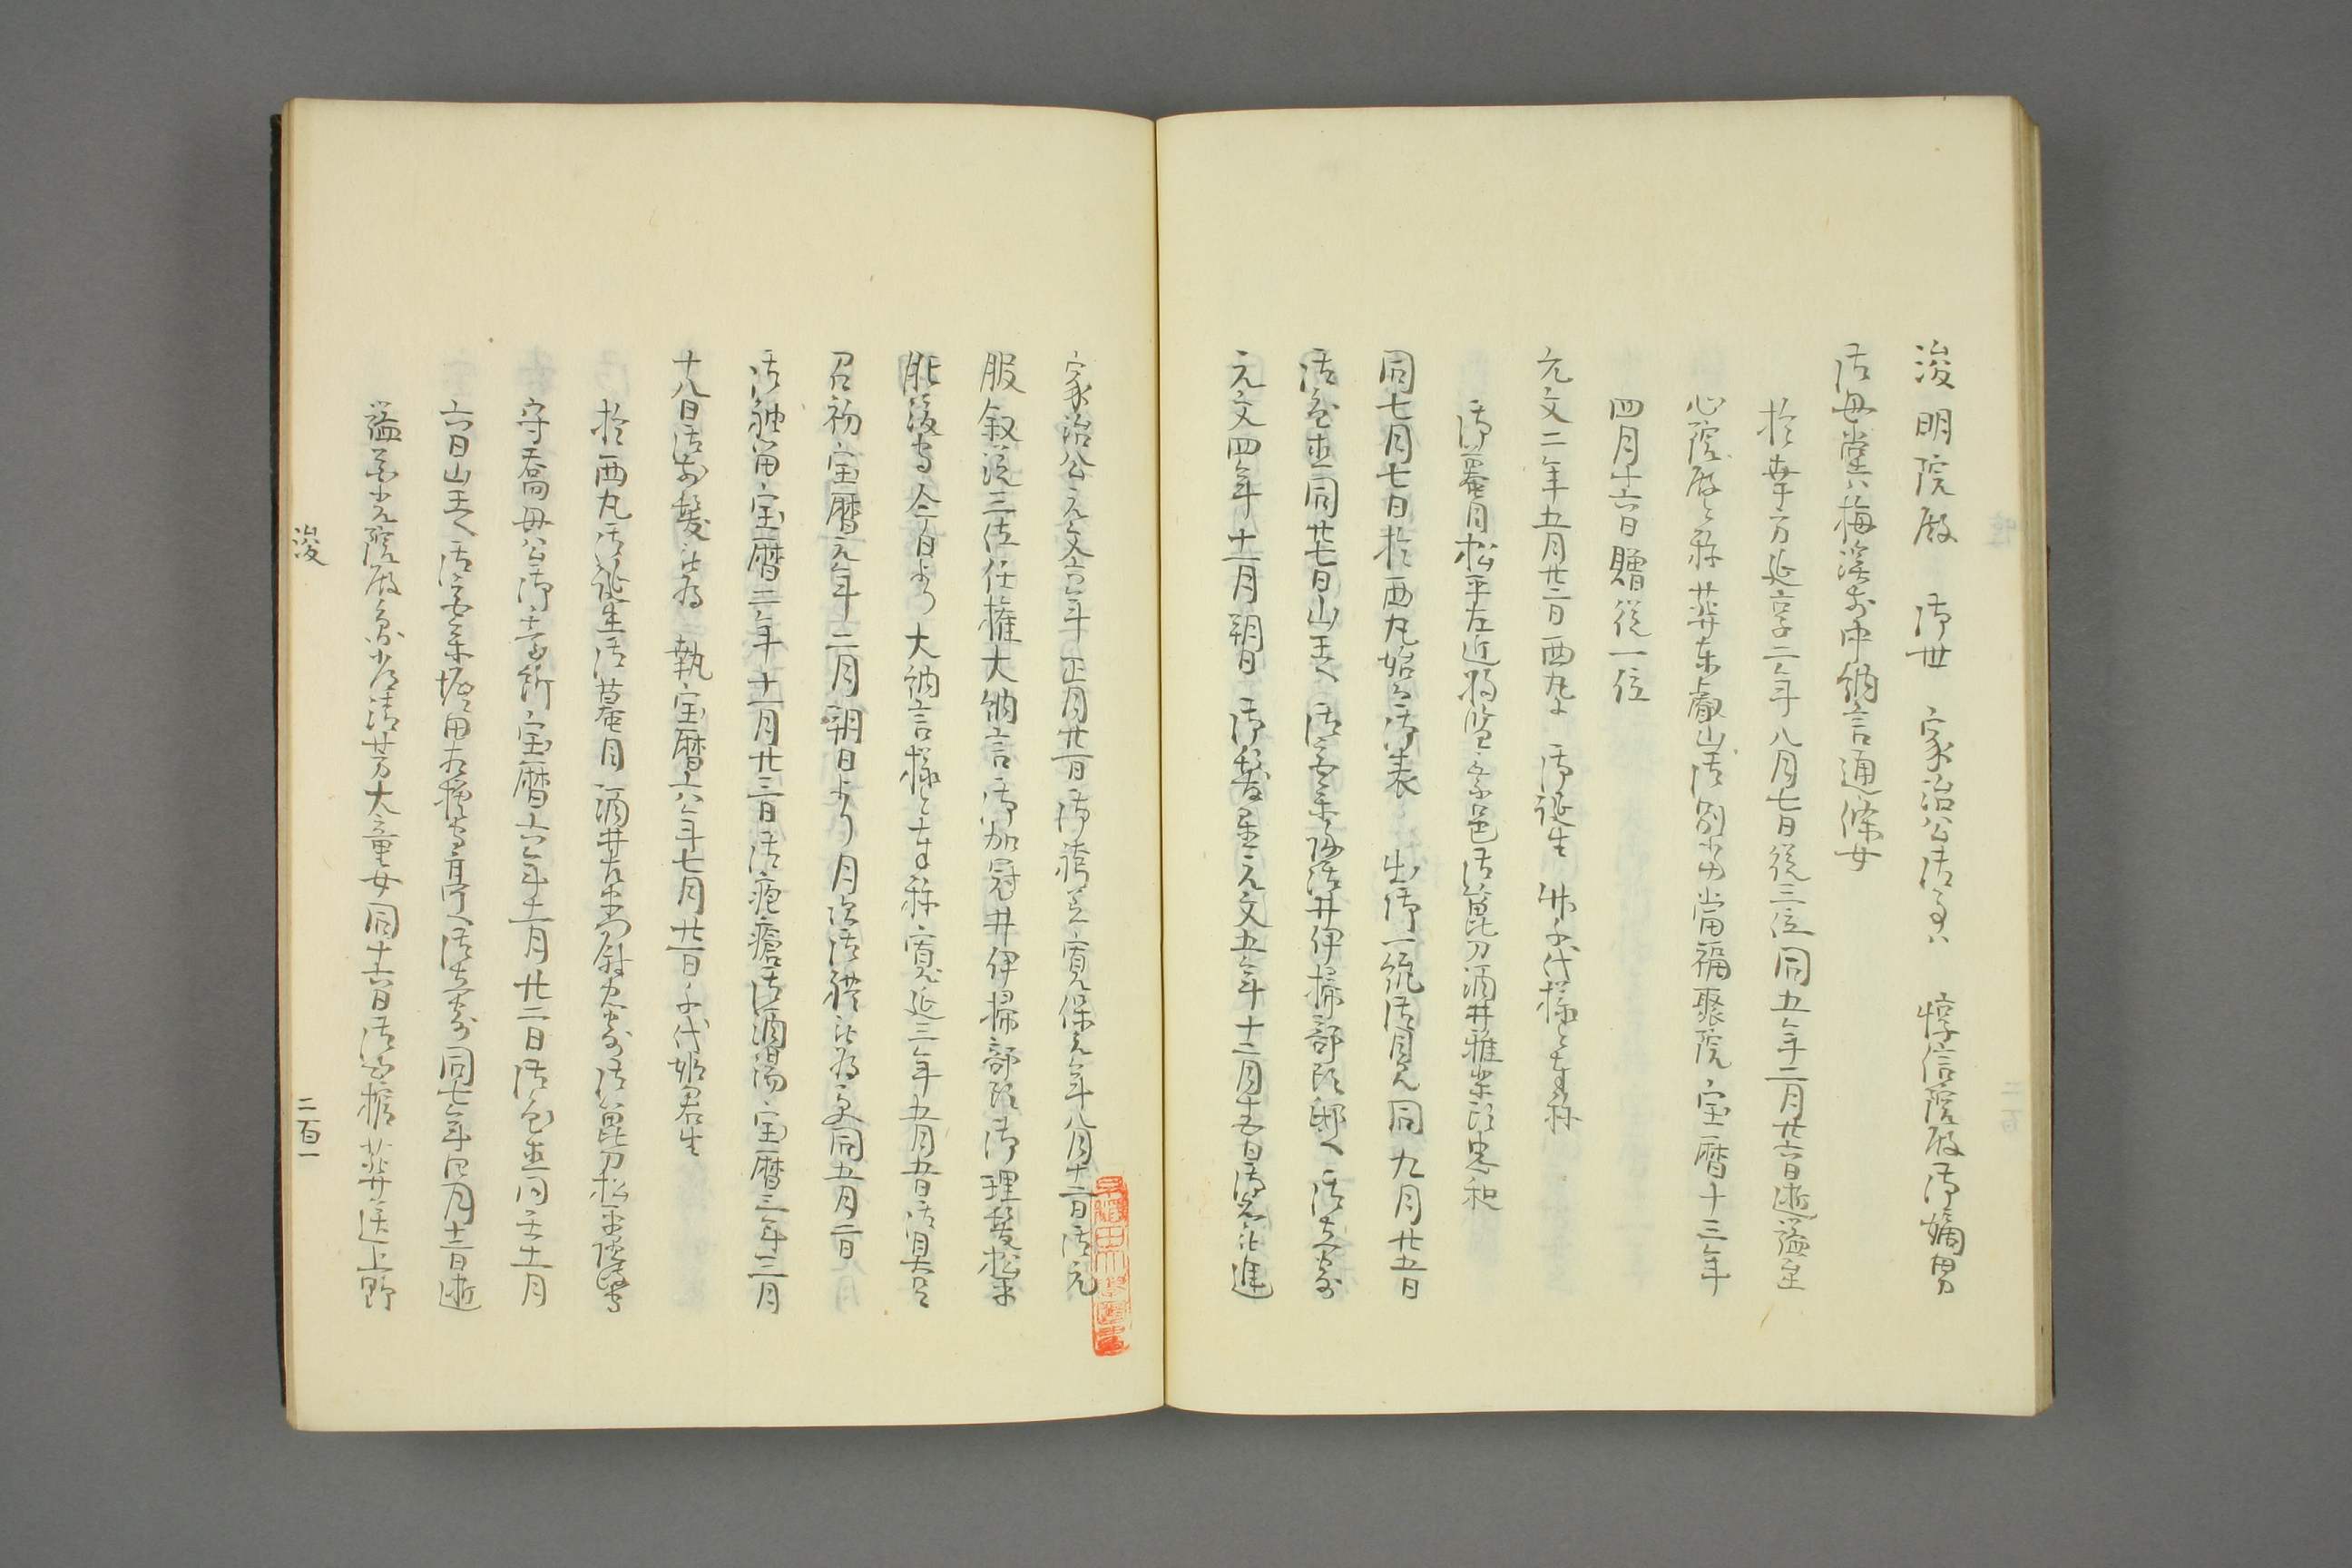 浚明院殿 御世 家治公御事ハ 惇信院殿御嫡男
御母堂ハ梅渓前中納言通條女
於幸方延享二年八月七日従三位同五年二月廿六日逝謚至
心院殿と称葬東叡山御別当福聚院宝暦十三年
四月十六日贈従一位
元文二年五月廿二日西丸ニ 御誕生 竹千代様と奉称
御蟇目松平左近将監乗邑御箆刀酒井雅楽頭忠知
同七月七日於西丸始而御表 出御一統御目見同九月廿五日
御色直同廿七日山王へ 御宮参御帰井伊掃部頭邸へ 御立寄
元文四年十一月朔日 御髪置元文五年十二月十五日御名被進
家治公元文六年正月廿一日御袴着寛保元年八月十二日御元
服叙従三位任権大納言御加冠井伊掃部頭御理髪松平
肥後守今日より大納言様と奉称寛延三年五月五日御具足
召初宝暦元年二月朔日より月次御礼被為受同五月二日
御袖留宝暦二年十一月廿三日御疱瘡御酒湯宝暦三年三月
十八日御前髪被為 執宝暦六年七月廿一日千代姫君生
於西丸御誕生御蟇目酒井左衛門尉忠寄御箆刀松平隠岐守
守喬母公御台所宝暦六年十一月廿二日御色直同壬十一月
六日山王へ御宮参堀田相模守亭へ御立寄同七年四月十二日逝
謚華光院殿影幻清芳大童女同十六日御出棺葬送上野
浚 二百一
早稲田大学図書